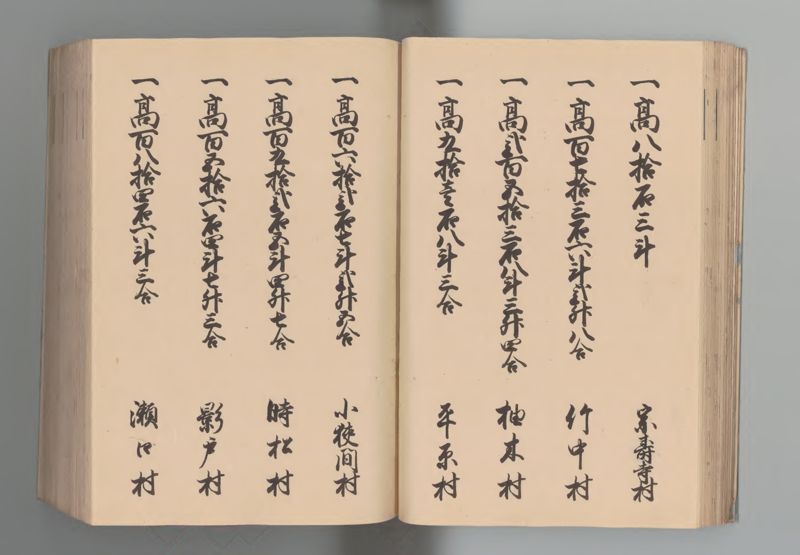 一高八拾石三斗 宗寿寺村
一高百七拾三石六斗弐升八合 竹中村
一高弐百五拾三石八斗三升四合 柚木村
一高九拾壱石八斗三合 平原村
一高百六拾弐石七斗弐升五合 小狭間村
一高百九拾弐石五斗四升七合 時松村
一高百五拾六石四斗七升三合 影戸村
一高百八拾四石六斗三合 瀬口村